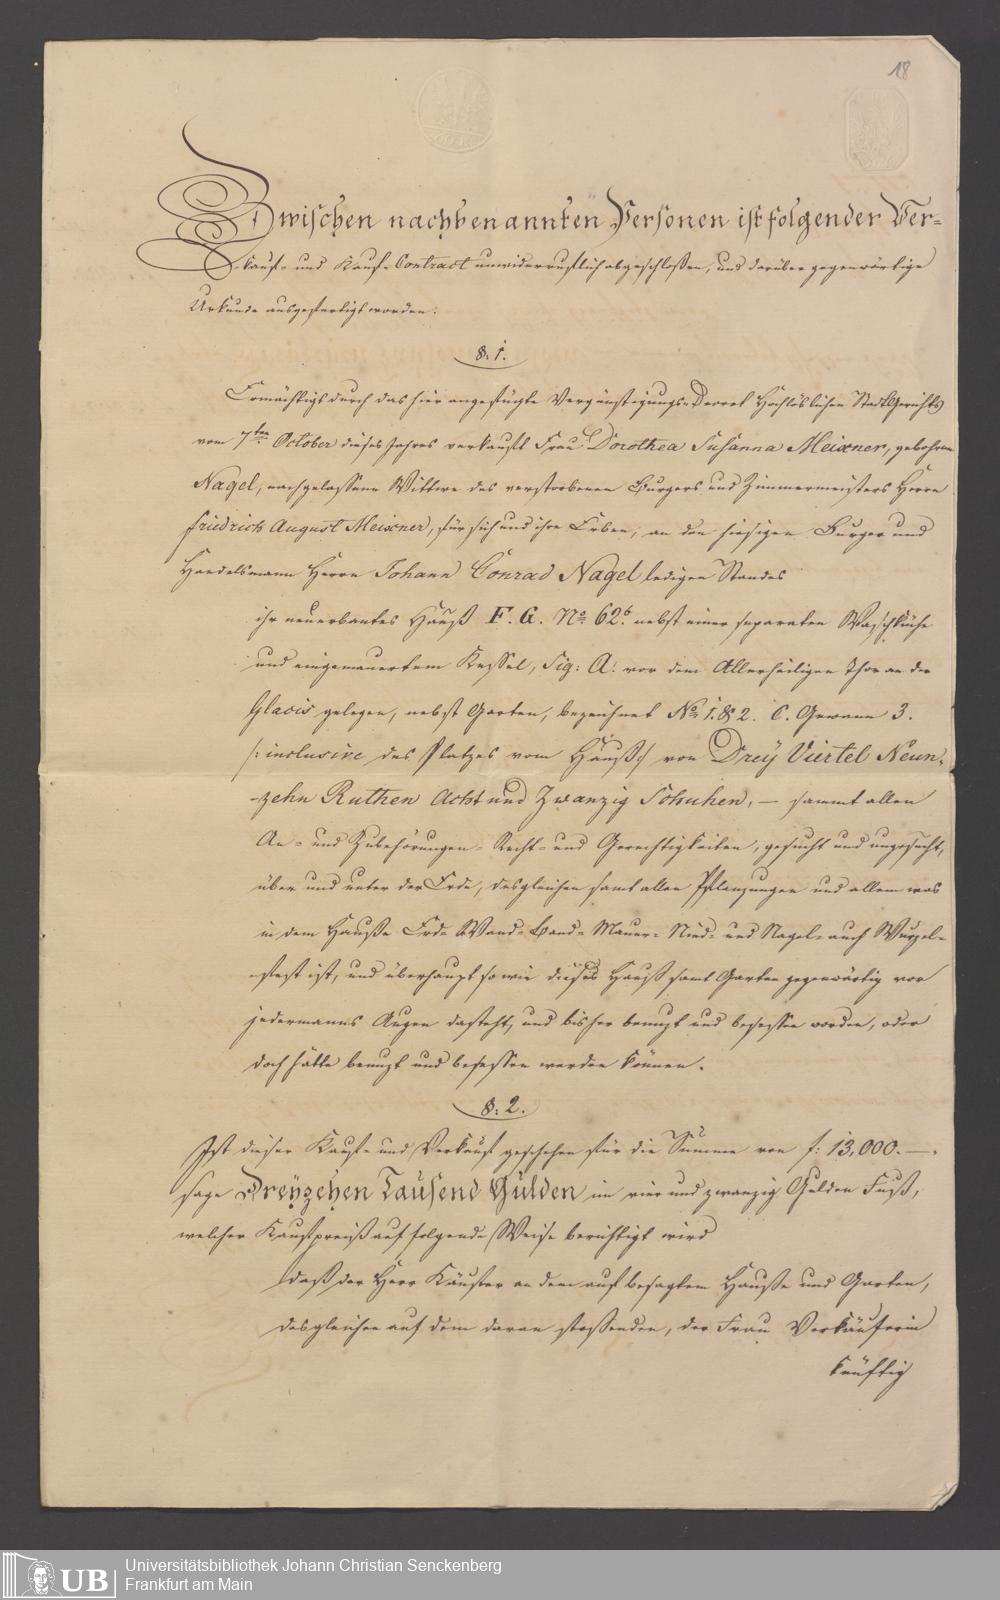 18
Zwischen nachbenannten Personen ist folgender Ver-
kauf- und Kauf-Contract unwiderruflich abgeschloßen, und darüber gegenwärtige
Urkunde ausgefertigt worden.
§. 1.
Ermächtigt durch das hier angefügte Vergünstigungs-Decret Hochlöblichen Stadt Gerichts
vom 7ten October dieses Jahres verkauft Frau Dorothea Susanna Meixner, gebohrne
Nagel, nachgelassene Wittwe des verstorbenen Burgers und Zimmermeisters Herrn
Friedrich August Meixner, für sich und ihre Erben, an den hiesigen Burger und
Handelsmann Herrn Johann Conrad Nagel ledigen Standes
ihr neuerbautes Hauß F. G. No. 62b. nebst einer separaten Waschküche
und eingemauertem Kessel, Sig: A: vor dem Allerheiligen Thor an der
Glacis gelegen, nebst Garten, bezeichnet No. 1. & 2. C. Gewann 3.
/: inclusive des Platzes vom Hauß :/ von Drey Viertel Neun-
-zehn Ruthen Acht und Zwanzig Schuhen, — sammt allen
An- und Zubehörungen- Recht- und Gerechtigkeiten, gesucht und ungesucht,
über und unter der Erde, desgleichen samt allen Pflanzungen und allem was
in dem Hauße Erd- Wand- Band- Mauer- Nied- und Nagel- auch Wurzel-
-fest ist, und überhaupt so wie dieses Hauß samt Garten gegenwärtig vor
jedermanns Augen dasteht, und bisher benuzt und besessen worden, oder
doch hätte benuzt und besessen werden können.
§. 2.
Ist dieser Kauf- und Verkauf geschehen für die Summe von f: 13,000. —.
sage Dreyzehen Tausend Gulden im vier und zwanzig Gulden Fuß,
welcher Kaufpreiß auf folgende Weise berichtigt wird
daß der Herr Käufer an dem auf besagtem Hauße und Garten,
desgleichen auf dem daran stossenden, der Frau Verkäuferin
künftig
UB
Universitätsbibliothek Johann Christian Senckenberg
Frankfurt am Main